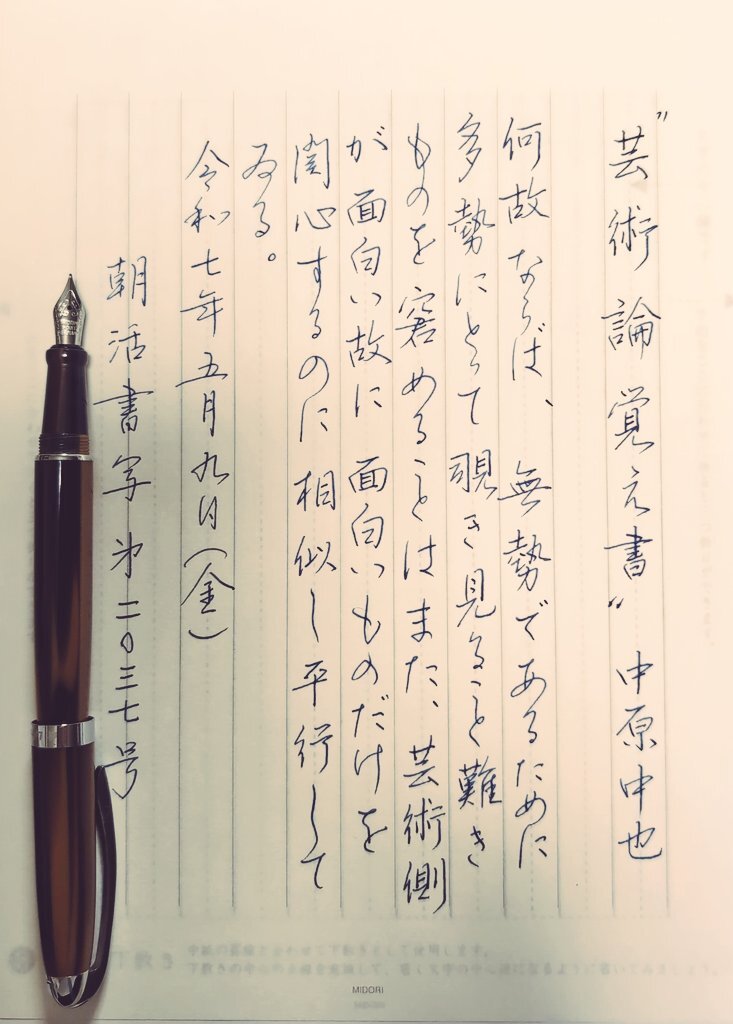 "芸術論覚え書" 中原中也
何故ならば、無勢であるために
多勢にとって覗き見ること難き
ものを窘めることはまた、芸術側
が面白い故に面白いものだけを
関心するのに相似し平行して
ゐる。
令和七年五月九日(金)
朝活書写㐧二〇三七号
MIDORI